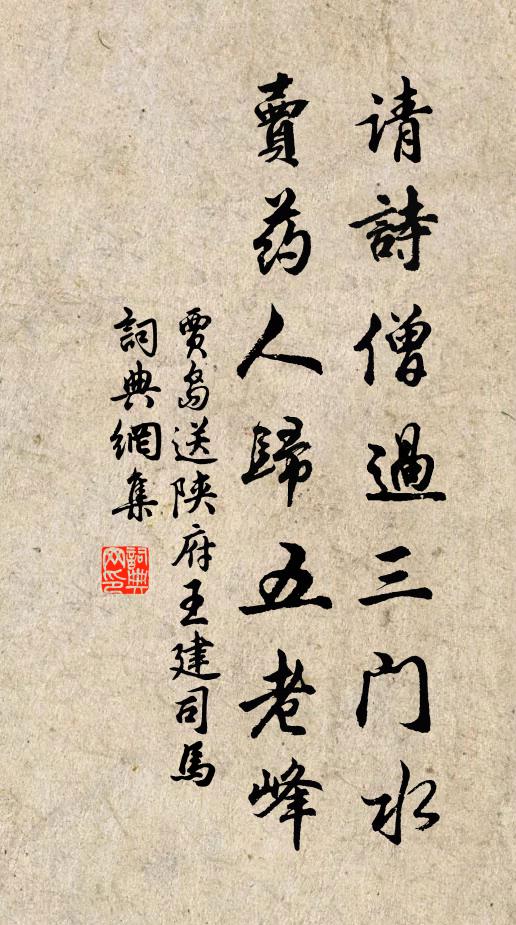 请詩僧過三门水
賣药人歸五老峰
贾岛送陕府王建司馬
詞典網集
詞典网印